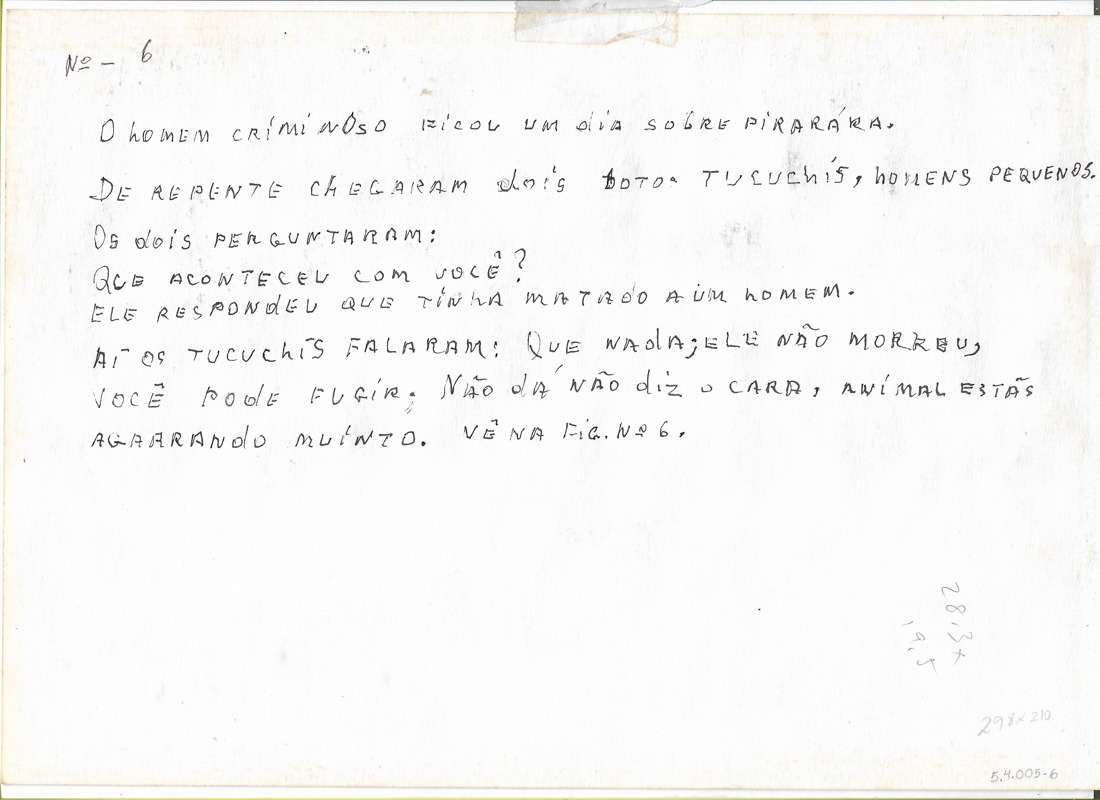 Nº - 6
O homEM CRÍMÍNOSO FICOU UM dia SOBRE PÍRARÁRA.
DE REPENTE ChEGARAM dois bOTOS TUCUChÍS, hOMENS PEQUENOS.
Os dois PERGUNTARAM:
QUE ACONTECEU COM VOCÊ?
ELE RESPONdEU QUE TÍNhA MATAdO A UM hOMEM.
AÍ OS TUCUChÍS FALARAM: QUE NAdA; ELE NÃO MORREU,
VOCÊ POdE FUGÍR; NÃO dÁ NÃO diZ O CARA, ANÍMAL ESTÁS
AGARRANdO MUÍNTO. VÊ NA FiG. Nº 6.
28,3 x
19,5
298 x 210
5.4.005-6